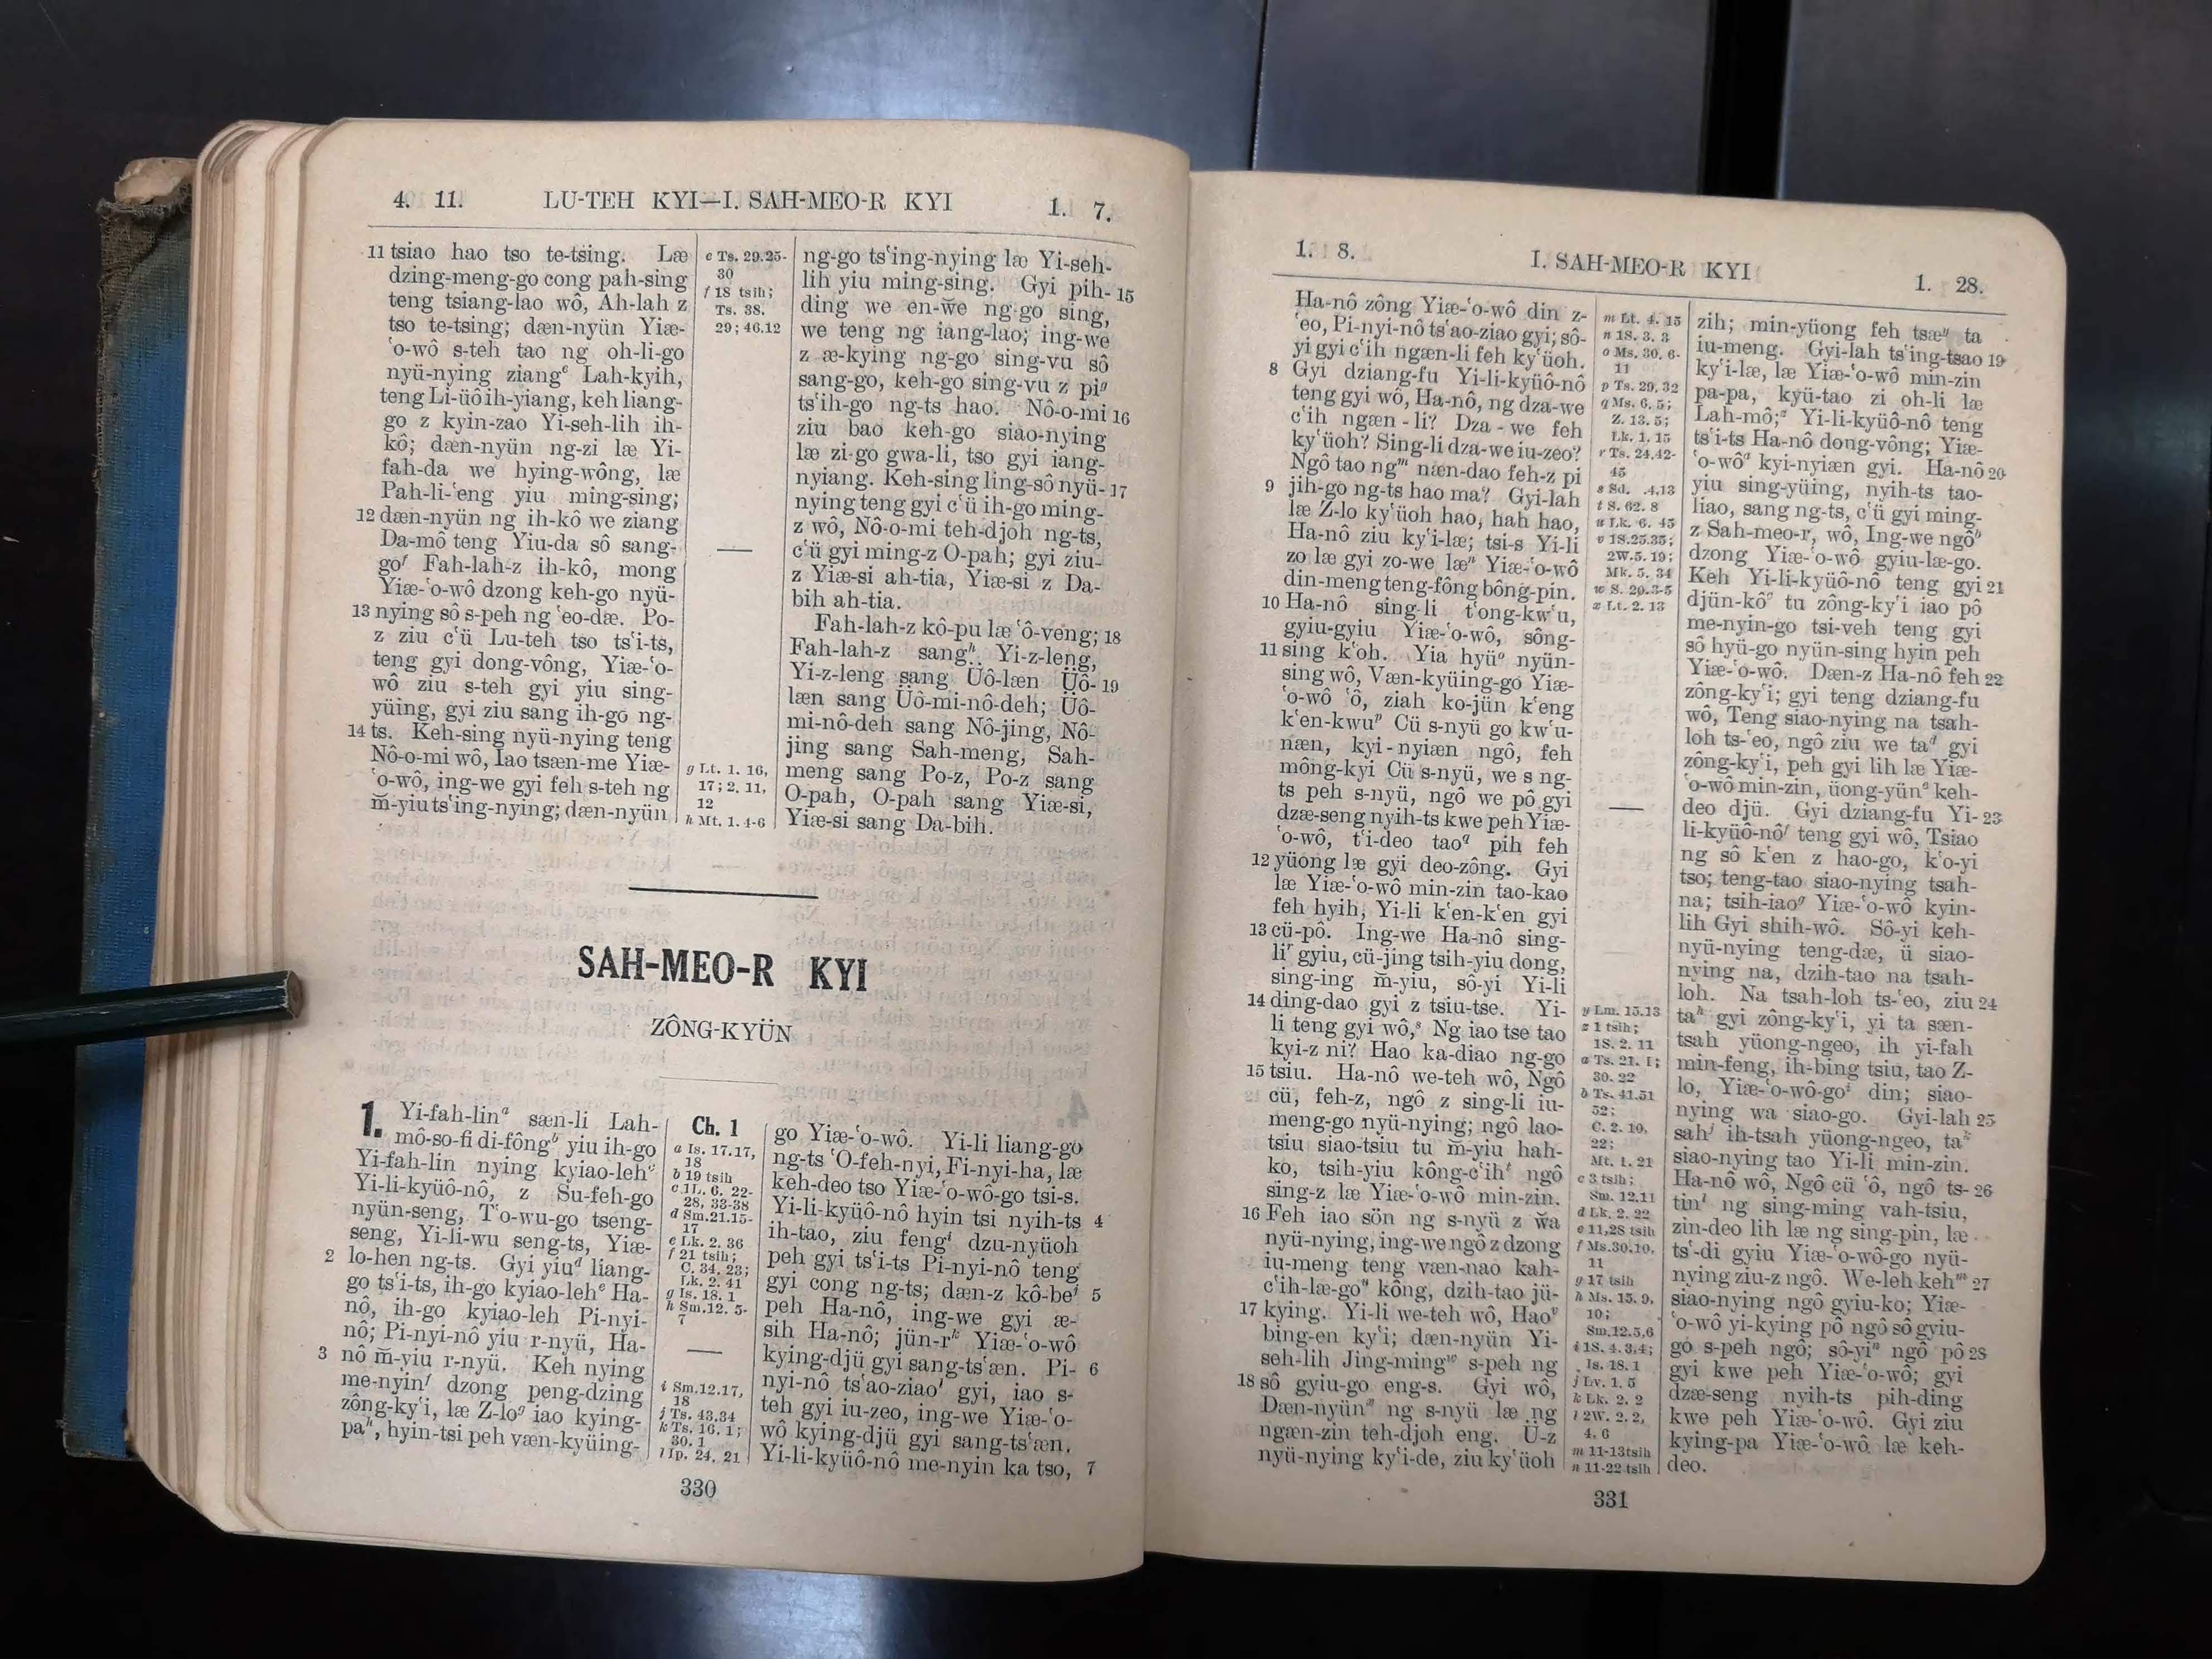 4. 11. LU-TEH KYI—I. SAH-MEO-R KYI 1. 7.
11 tsiao hao tso te-tsing. Læ
dzing-meng-go cong pah-sing
teng tsiang-lao wô, Ah-lah z
tso te-tsing; dæn-nyün Yiæ-
ʻo-wô s-teh tao ng oh-li-go
nyü-nying ziangᵉ Lah-kyih,
teng Li-üô ih-yiang, keh liang-
go z kyin-zao Yi-seh-lih ih-
kô; dæn-nyün ng-zi læ Yi-
fah-da we hying-wông, læ
Pah-li-ʻeng yiu ming-sing;
12 dæn-nyün ng ih-kô we ziang
Da-mô teng Yiu-da sô sang-
goᶠ Fah-lah-z ih-kô, mong
Yiæ-ʻo-wô dzong keh-go nyü-
13 nying sô s-peh ng ʻeo-dæ. Po-
z ziu cʻü Lu-teh tso tsʻi-ts,
teng gyi dong-vông, Yiæ-ʻo-
wô ziu s-teh gyi yiu sing-
yüing, gyi ziu sang ih-go ng-
14 ts. Keh-sing nyü-nying teng
Nô-o-mi wô, Iao tsæn-me Yiæ-
ʻo-wô, ing-we gyi feh s-teh ng
m̆-yiu tsʻing-nying; dæn-nyün
e Ts. 29.25-
30
f 18 tsih;
Ts. 38.
29; 46.12
g Lt. 1. 16,
17; 2. 11,
12
h Mt. 1. 4-6
ng-go tsʻing-nying læ Yi-seh-
lih yiu ming-sing. Gyi pih- 15
ding we en-we ng-go sing,
we teng ng iang-lao; ing-we
z æ-kying ng-go sing-vu sô
sang-go, keh-go sing-vu z piᵍ
tsʻih-go ng-ts hao. Nô-o-mi 16
ziu bao keh-go siao-nying
læ zi-go gwa-li, tso gyi iang-
nyiang. Keh-sing ling-sô nyü- 17
nying teng gyi cʻü ih-go ming-
z wô, Nô-o-mi teh-djoh ng-ts,
cʻü gyi ming-z O-pah; gyi ziu-
z Yiæ-si ah-tia, Yiæ-si z Da-
bih ah-tia.
Fah-lah-z kô-pu læ ʻô-veng; 18
Fah-lah-z sangʰ Yi-z-leng,
Yi-z-leng sang Üô-læn Üô- 19
læn sang Üô-mi-nô-deh; Üô-
mi-nô-deh sang Nô-jing, Nô-
jing sang Sah-meng, Sah-
meng sang Po-z, Po-z sang
O-pah, O-pah sang Yiæ-si,
Yiæ-si sang Da-bih.
SAH-MEO-R KYI
ZÔNG-KYÜN
1. Yi-fah-linᵃ sæn-li Lah-
mô-so-fi di-fôngᵇ yiu ih-go
Yi-fah-lin nying kyiao-lehᶜ
Yi-li-kyüô-nô, z Su-feh-go
nyün-seng, Tʻo-wu-go tseng-
seng, Yi-li-wu seng-ts, Yiæ-
2 lo-hen ng-ts. Gyi yiuᵈ liang-
go tsʻi-ts, ih-go kyiao-lehᵉ Ha-
nô, ih-go kyiao-leh Pi-nyi-
nô; Pi-nyi-nô yiu r-nyü, Ha-
3 nô m̆-yiu r-nyü. Keh nying
me-nyinᶠ dzong peng-dzing
zông-kyʻi, læ Z-loᵍ iao kying-
paʰ, hyin-tsi peh væn-kyüing-
Ch. 1
a Is. 17.17,
18
b 19 tsih
c 1L. 6. 22-
28, 33-38
d Sm.21.15-
17
e Lk. 2. 36
f 21 tsih;
C. 34. 23;
Lk. 2. 41
g Is. 18. 1
h Sm.12. 5-
7
i Sm.12.17,
18
j Ts. 43.34
k Ts. 16. 1;
30. 1
l Ip. 24. 21
go Yiæ-ʻo-wô. Yi-li liang-go
ng-ts ʻO-feh-nyi, Fi-nyi-ha, læ
keh-deo tso Yiæ-ʻo-wô-go tsi-s.
Yi-li-kyüô-nô hyin tsi nyih-ts 4
ih-tao, ziu fengⁱ dzu-nyüoh
peh gyi tsʻi-ts Pi-nyi-nô teng
gyi cong ng-ts; dæn-z kô-beʲ 5
peh Ha-nô, ing-we gyi æ-
sih Ha-nô; jün-rᵏ Yiæ-ʻo-wô
kying-djü gyi sang-tsʻæn. Pi- 6
nyi-nô tsʻao-ziaoˡ gyi, iao s-
teh gyi iu-zeo, ing-we Yiæ-ʻo-
wô kying-djü gyi sang-tsʻæn.
Yi-li-kyüô-nô me-nyin ka tso, 7
330
1. 8. I. SAH-MEO-R KYI 1. 28.
Ha-nô zông Yiæ-ʻo-wô din z-
ʻeo, Pi-nyi-nô tsʻao-ziao gyi; sô-
yi gyi cʻih ngæn-li feh kyʻüoh.
8 Gyi dziang-fu Yi-li-kyüô-nô
teng gyi wô, Ha-nô, ng dza-we
cʻih ngæn-li? Dza-we feh
kyʻüoh? Sing-li dza-we iu-zeo?
Ngô tao ngᵐ næn-dao feh-z pi
9 jih-go ng-ts hao ma? Gyi-lah
læ Z-lo kyʻüoh hao, hah hao,
Ha-nô ziu kyʻi-læ; tsi-s Yi-li
zo læ gyi zo-we læⁿ Yiæ-ʻo-wô
din-meng teng-fông bông-pin.
10 Ha-nô sing-li tʻong-kwʻu,
gyiu-gyiu Yiæ-ʻo-wô, sông-
11 sing kʻoh. Yia hyüᵒ nyün-
sing wô, Væn-kyüing-go Yiæ-
ʻo-wô ʻô, ziah ko-jün kʻeng
kʻen-kwuᵖ Cü s-nyü go kwʻu-
næn, kyi-nyiæn ngô, feh
mông-kyi Cü s-nyü, we s ng-
ts peh s-nyü, ngô we pô gyi
dzæ-seng nyih-ts kwe peh Yiæ-
ʻo-wô, tʻi-deo tao𐞥 pih feh
12 yüong læ gyi deo-zông. Gyi
læ Yiæ-ʻo-wô min-zin tao-kao
feh hyih, Yi-li kʻen-kʻen gyi
13 cü-pô. Ing-we Ha-nô sing-
liʳ gyiu, cü-jing tsih-yiu dong,
sing-ing m̆-yiu, sô-yi Yi-li
14 ding-dao gyi z tsiu-tse. Yi-
li teng gyi wô,ˢ Ng iao tse tao
kyi-z ni? Hao ka-diao ng-go
15 tsiu. Ha-nô we-teh wô, Ngô
cü, feh-z, ngô z sing-li iu-
meng-go nyü-nying; ngô lao-
tsiu siao-tsiu tu m̆-yiu hah-
ko, tsih-yiu kông-cʻihᵗ ngô
sing-z læ Yiæ-ʻo-wô min-zin.
16 Feh iao sön ng s-nyü z wa
nyü-nying, ing-we ngô z dzong
iu-meng teng væn-nao kah-
cʻih-læ-goᵘ kông, dzih-tao jü-
17 kying. Yi-li we-teh wô, Haoᵛ
bing-en kyʻi; dæn-nyün Yi-
seh-lih Jing-mingʷ s-peh ng
18 sô gyiu-go eng-s. Gyi wô,
Dæn-nyünˣ ng s-nyü læ ng
ngæn-zin teh-djoh eng. Ü-z
nyü-nying kyʻi-de, ziu kyʻüoh
m Lt. 4. 15
n 1S. 3. 3
o Ms. 30. 6-
11
p Ts. 29. 32
q Ms. 6. 5;
Z. 13. 5;
Lk. 1. 15
r Ts. 24.42-
45
s Sd. .4.13
t S. 62. 8
u Lk. 6. 45
v 1S.25.35;
2W.5. 19;
Mk. 5. 34
w S. 20.3-5
x Lt. 2. 13
y Lm. 15.13
z 1 tsih;
1S. 2. 11
a Ts. 21. 1;
30. 22
b Ts. 41.51
52;
C. 2. 10,
22;
Mt. 1. 21
c 3 tsih;
Sm. 12.11
d Lk. 2. 22
e 11,28 tsih
f Ms.30.10,
11
g 17 tsih
h Ms. 15. 9,
10;
Sm.12.5,6
i 1S. 4. 3,4;
Is. 18. 1
j Lv. 1. 5
k Lk. 2. 2
l 2W. 2. 2,
4, 6
m 11-13 tsih
n 11-22 tsih
zih; min-yüong feh tsæʸ ta
iu-meng. Gyi-lah tsʻing-tsao 19
kyʻi-læ, læ Yiæ-ʻo-wô min-zin
pa-pa, kyü-tao zi oh-li læ
Lah-mô;ᶻ Yi-li-kyüô-nô teng
tsʻi-ts Ha-nô dong-vông; Yiæ-
ʻo-wôᵃ kyi-nyiæn gyi. Ha-nô 20
yiu sing-yüing, nyih-ts tao-
liao, sang ng-ts, cʻü gyi ming-
z Sah-meo-r, wô, Ing-we ngôᵇ
dzong Yiæ-ʻo-wô gyiu-læ-go.
Keh Yi-li-kyüô-nô teng gyi 21
djün-kôᶜ tu zông-kyʻi iao pô
me-nyin-go tsi-veh teng gyi
sô hyü-go nyün-sing hyin peh
Yiæ-ʻo-wô. Dæn-z Ha-nô feh 22
zông-kyʻi; gyi teng dziang-fu
wô, Teng siao-nying na tsah-
loh ts-ʻeo, ngô ziu we taᵈ gyi
zông-kyʻi, peh gyi lih læ Yiæ-
ʻo-wô min-zin, üong-yünᵉ keh-
deo djü. Gyi dziang-fu Yi- 23
li-kyüô-nôᶠ teng gyi wô, Tsiao
ng sô kʻen z hao-go, kʻo-yi
tso; teng-tao siao-nying tsah-
na; tsih-iaoᵍ Yiæ-ʻo-wô kyin-
lih Gyi shih-wô. Sô-yi keh-
nyü-nying teng-dæ, ü siao-
nying na, dzih-tao na tsah-
loh. Na tsah-loh ts-ʻeo, ziu 24
taʰ gyi zông-kyʻi, yi ta sæn-
tsah yüong-ngeo, ih yi-fah
min-feng, ih-bing tsiu, tao Z-
lo, Yiæ-ʻo-wô-goⁱ din; siao-
nying wa siao-go. Gyi-lah 25
sahʲ ih-tsah yüong-ngeo, taᵏ
siao-nying tao Yi-li min-zin.
Ha-nô wô, Ngô cü ʻô, ngô ts- 26
tinˡ ng sing-ming vah-tsiu,
zin-deo lih læ ng sing-pin, læ
tsʻ-di gyiu Yiæ-ʻo-wô-go nyü-
nying ziu-z ngô. We-leh kehᵐ 27
siao-nying ngô gyiu-ko; Yiæ-
ʻo-wô yi-kying pô ngô sô gyiu-
go s-peh ngô; sô-yiⁿ ngô pô 28
gyi kwe peh Yiæ-ʻo-wô; gyi
dzæ-seng nyih-ts pih-ding
kwe peh Yiæ-ʻo-wô. Gyi ziu
kying-pa Yiæ-ʻo-wô læ keh-
deo.
331